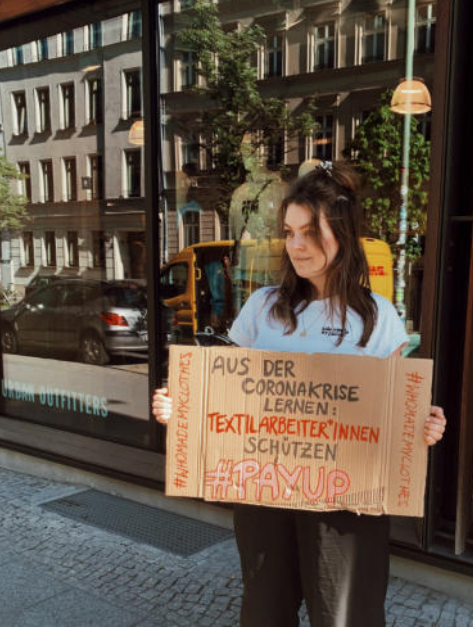 URBAN OUTFITTERS
DHL
#WHOMADEMYCLOTHES
AUS DER
CORONAKRISE
LERNEN:
TEXTILARBEITER*INNEN
SCHÜTZEN
#PAYUP
#WHOMADEMYCLOTHES